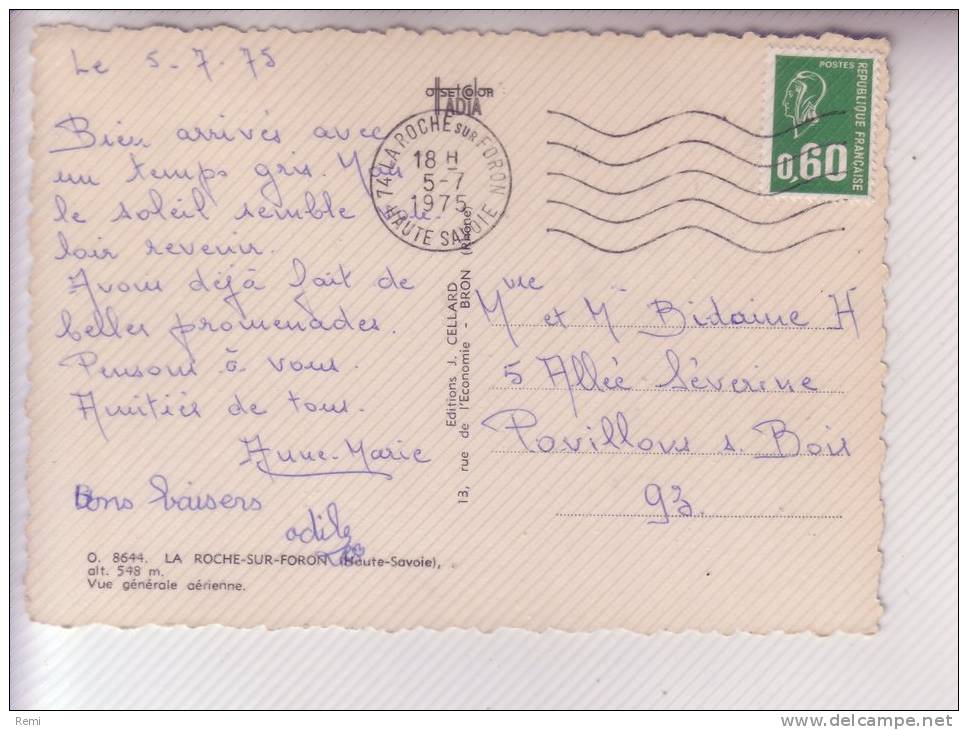 Le 5-7.75
Bien arrivés avec
un temps gris. Mais
le soleil semble vou-
loir revenir.
Avons déjà fait de
belles promenades.
Pensons à vous.
Amitiés de tous.
Anne-Marie
Bons baisers
odile
O. 8644. LA ROCHE-SUR-FORON (Haute-Savoie),
alt. 548 m.
Vue générale aérienne.
OFFSET COLOR
ADIA
74 LA ROCHE SUR FORON
18 H
5-7
1975
HAUTE SAVOIE
Editions J. CELLARD
13, rue de l'Economie - BRON (Rhône)
POSTES
REPUBLIQUE FRANÇAISE
0,60
Mr et Mme Bidaine H
5 Allée Séverine
Pavillons s. Bois
93.
Remi
http://www.delcampe.net